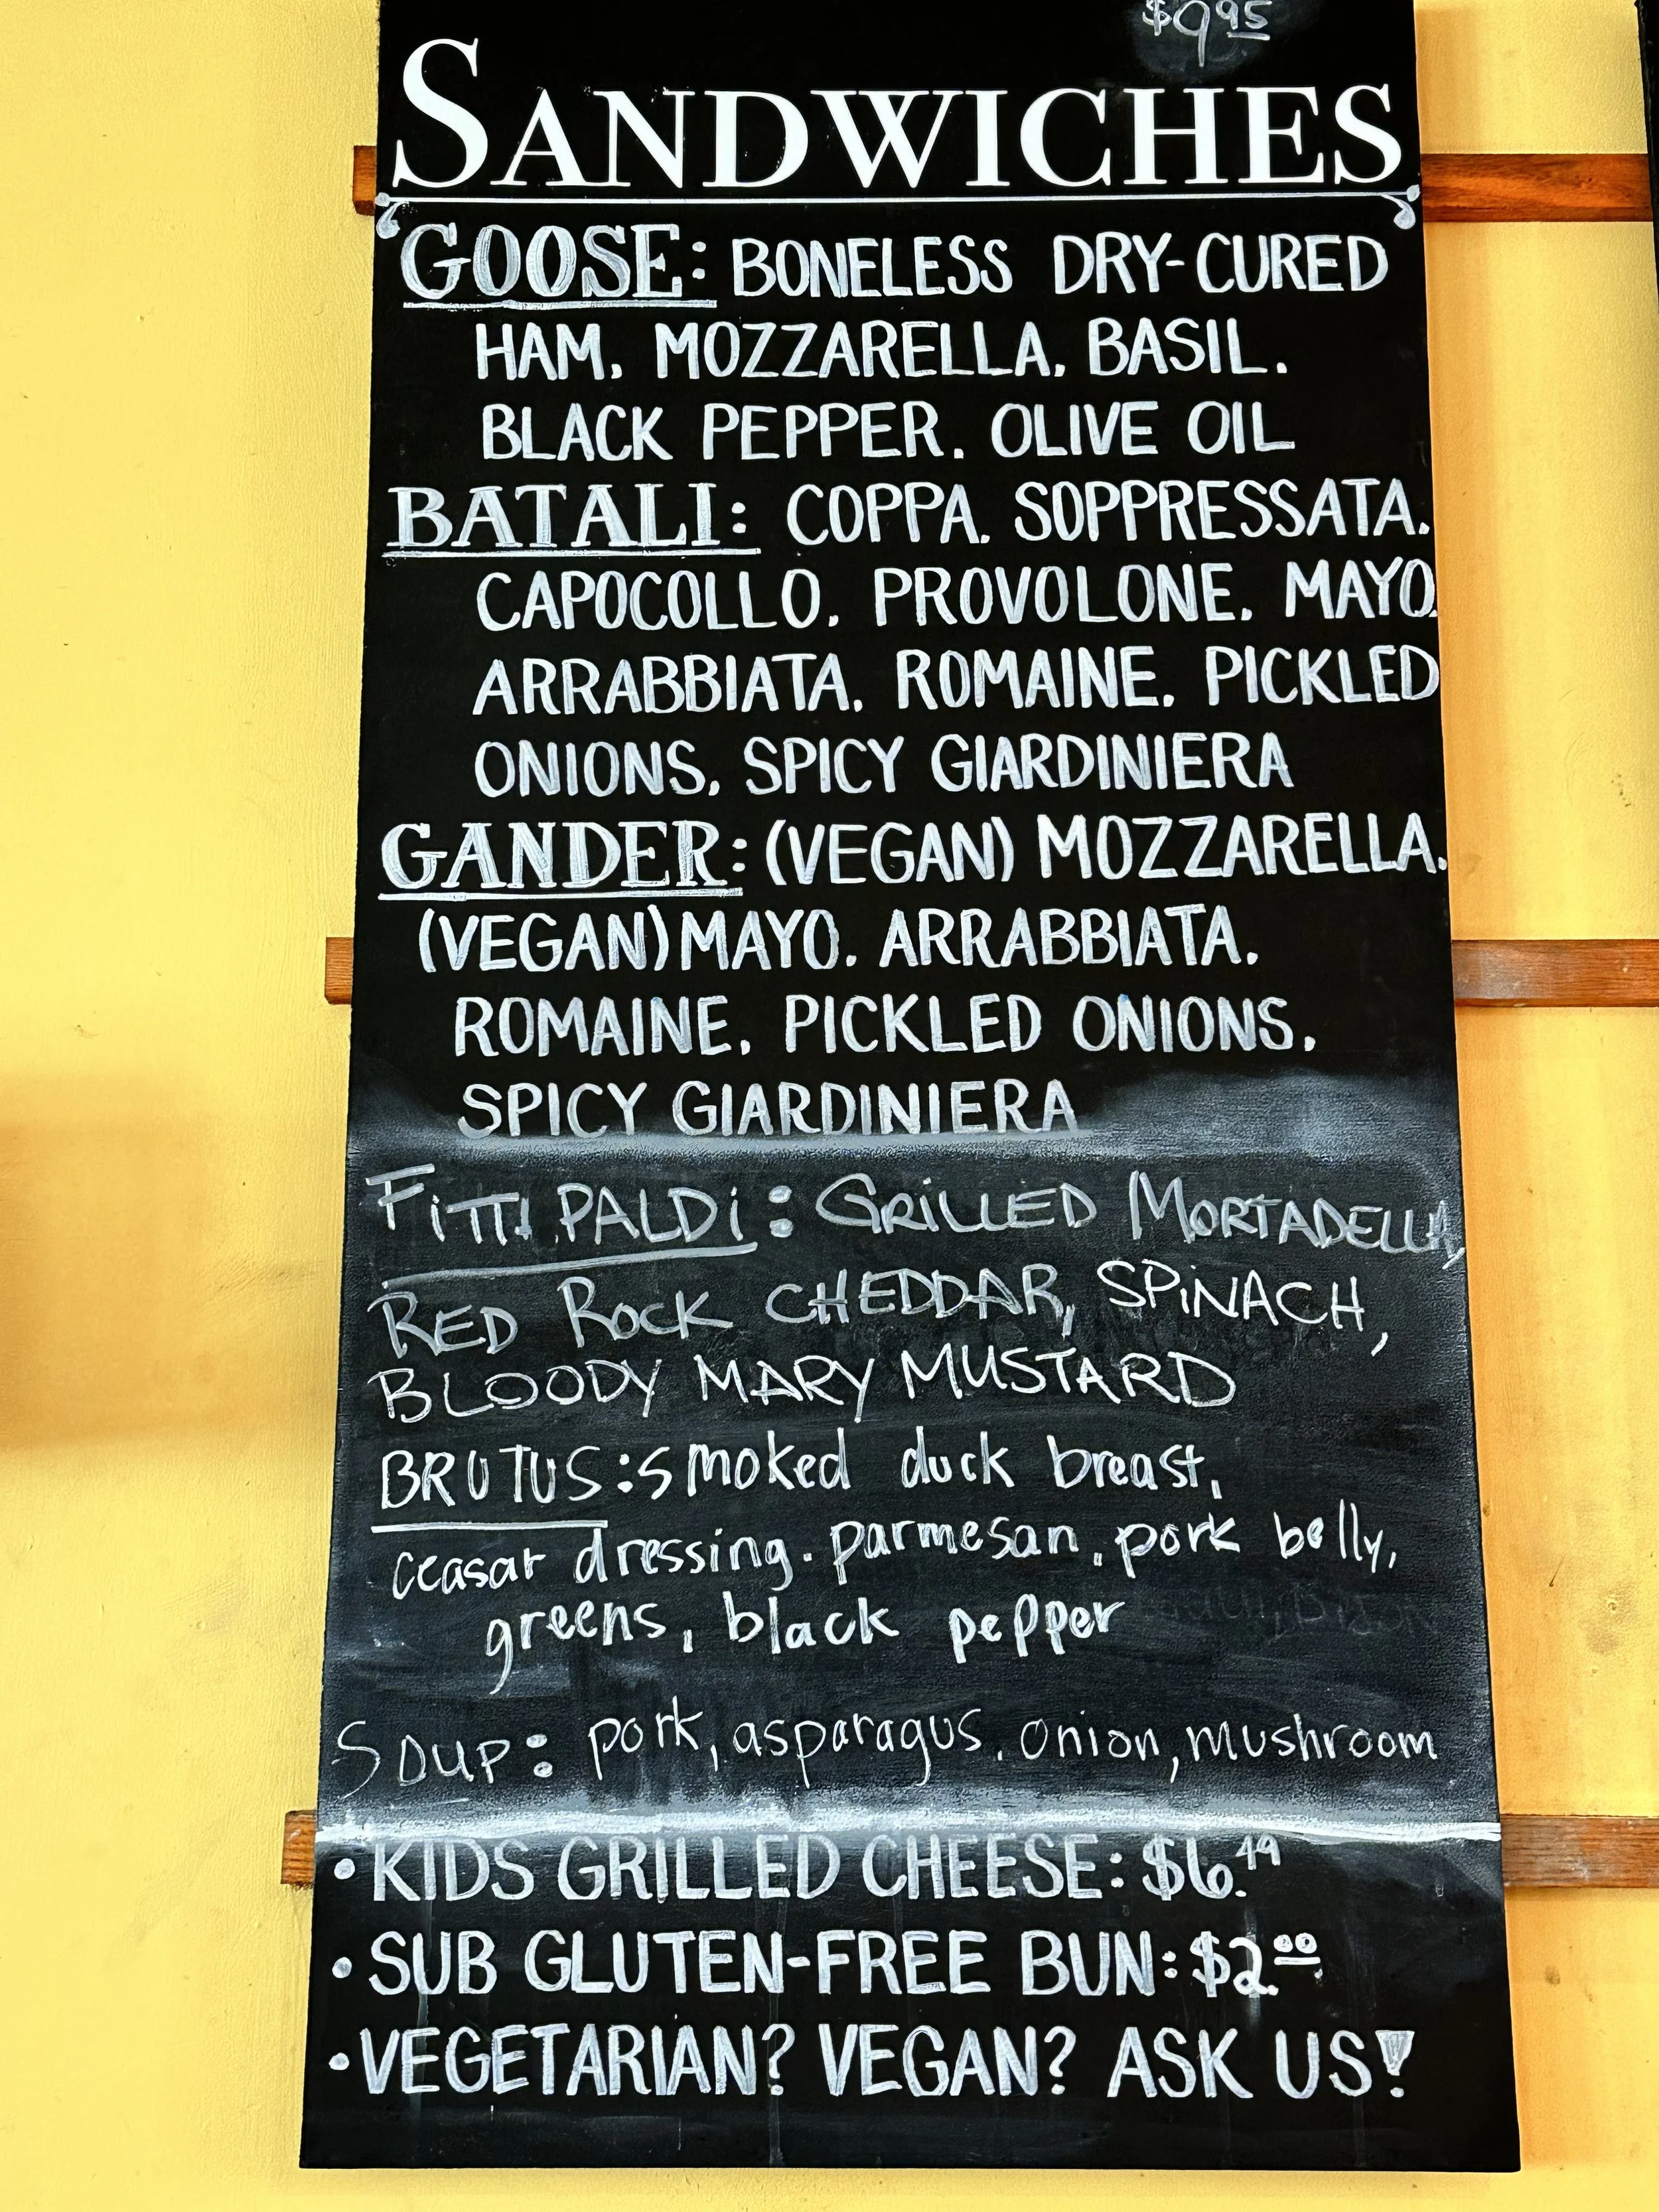 $9.95
SANDWICHES
GOOSE: BONELESS DRY-CURED
HAM. MOZZARELLA. BASIL.
BLACK PEPPER. OLIVE OIL
BATALI: COPPA. SOPPRESSATA.
CAPOCOLLO. PROVOLONE. MAYO.
ARRABBIATA. ROMAINE. PICKLED
ONIONS. SPICY GIARDINIERA
GANDER: (VEGAN) MOZZARELLA.
(VEGAN) MAYO. ARRABBIATA.
ROMAINE. PICKLED ONIONS.
SPICY GIARDINIERA
FiTTiPALDi: GRiLLED MORTADELLA,
RED ROCK CHEDDAR, SPiNACH,
BLOODY MARY MUSTARD
BRUTUS: smoked duck breast,
ceasar dressing. parmesan, pork belly,
greens, black pepper
SOUP: pork, asparagus, onion, mushroom
• KIDS GRILLED CHEESE: $6.49
• SUB GLUTEN-FREE BUN: $2.00
• VEGETARIAN? VEGAN? ASK US!